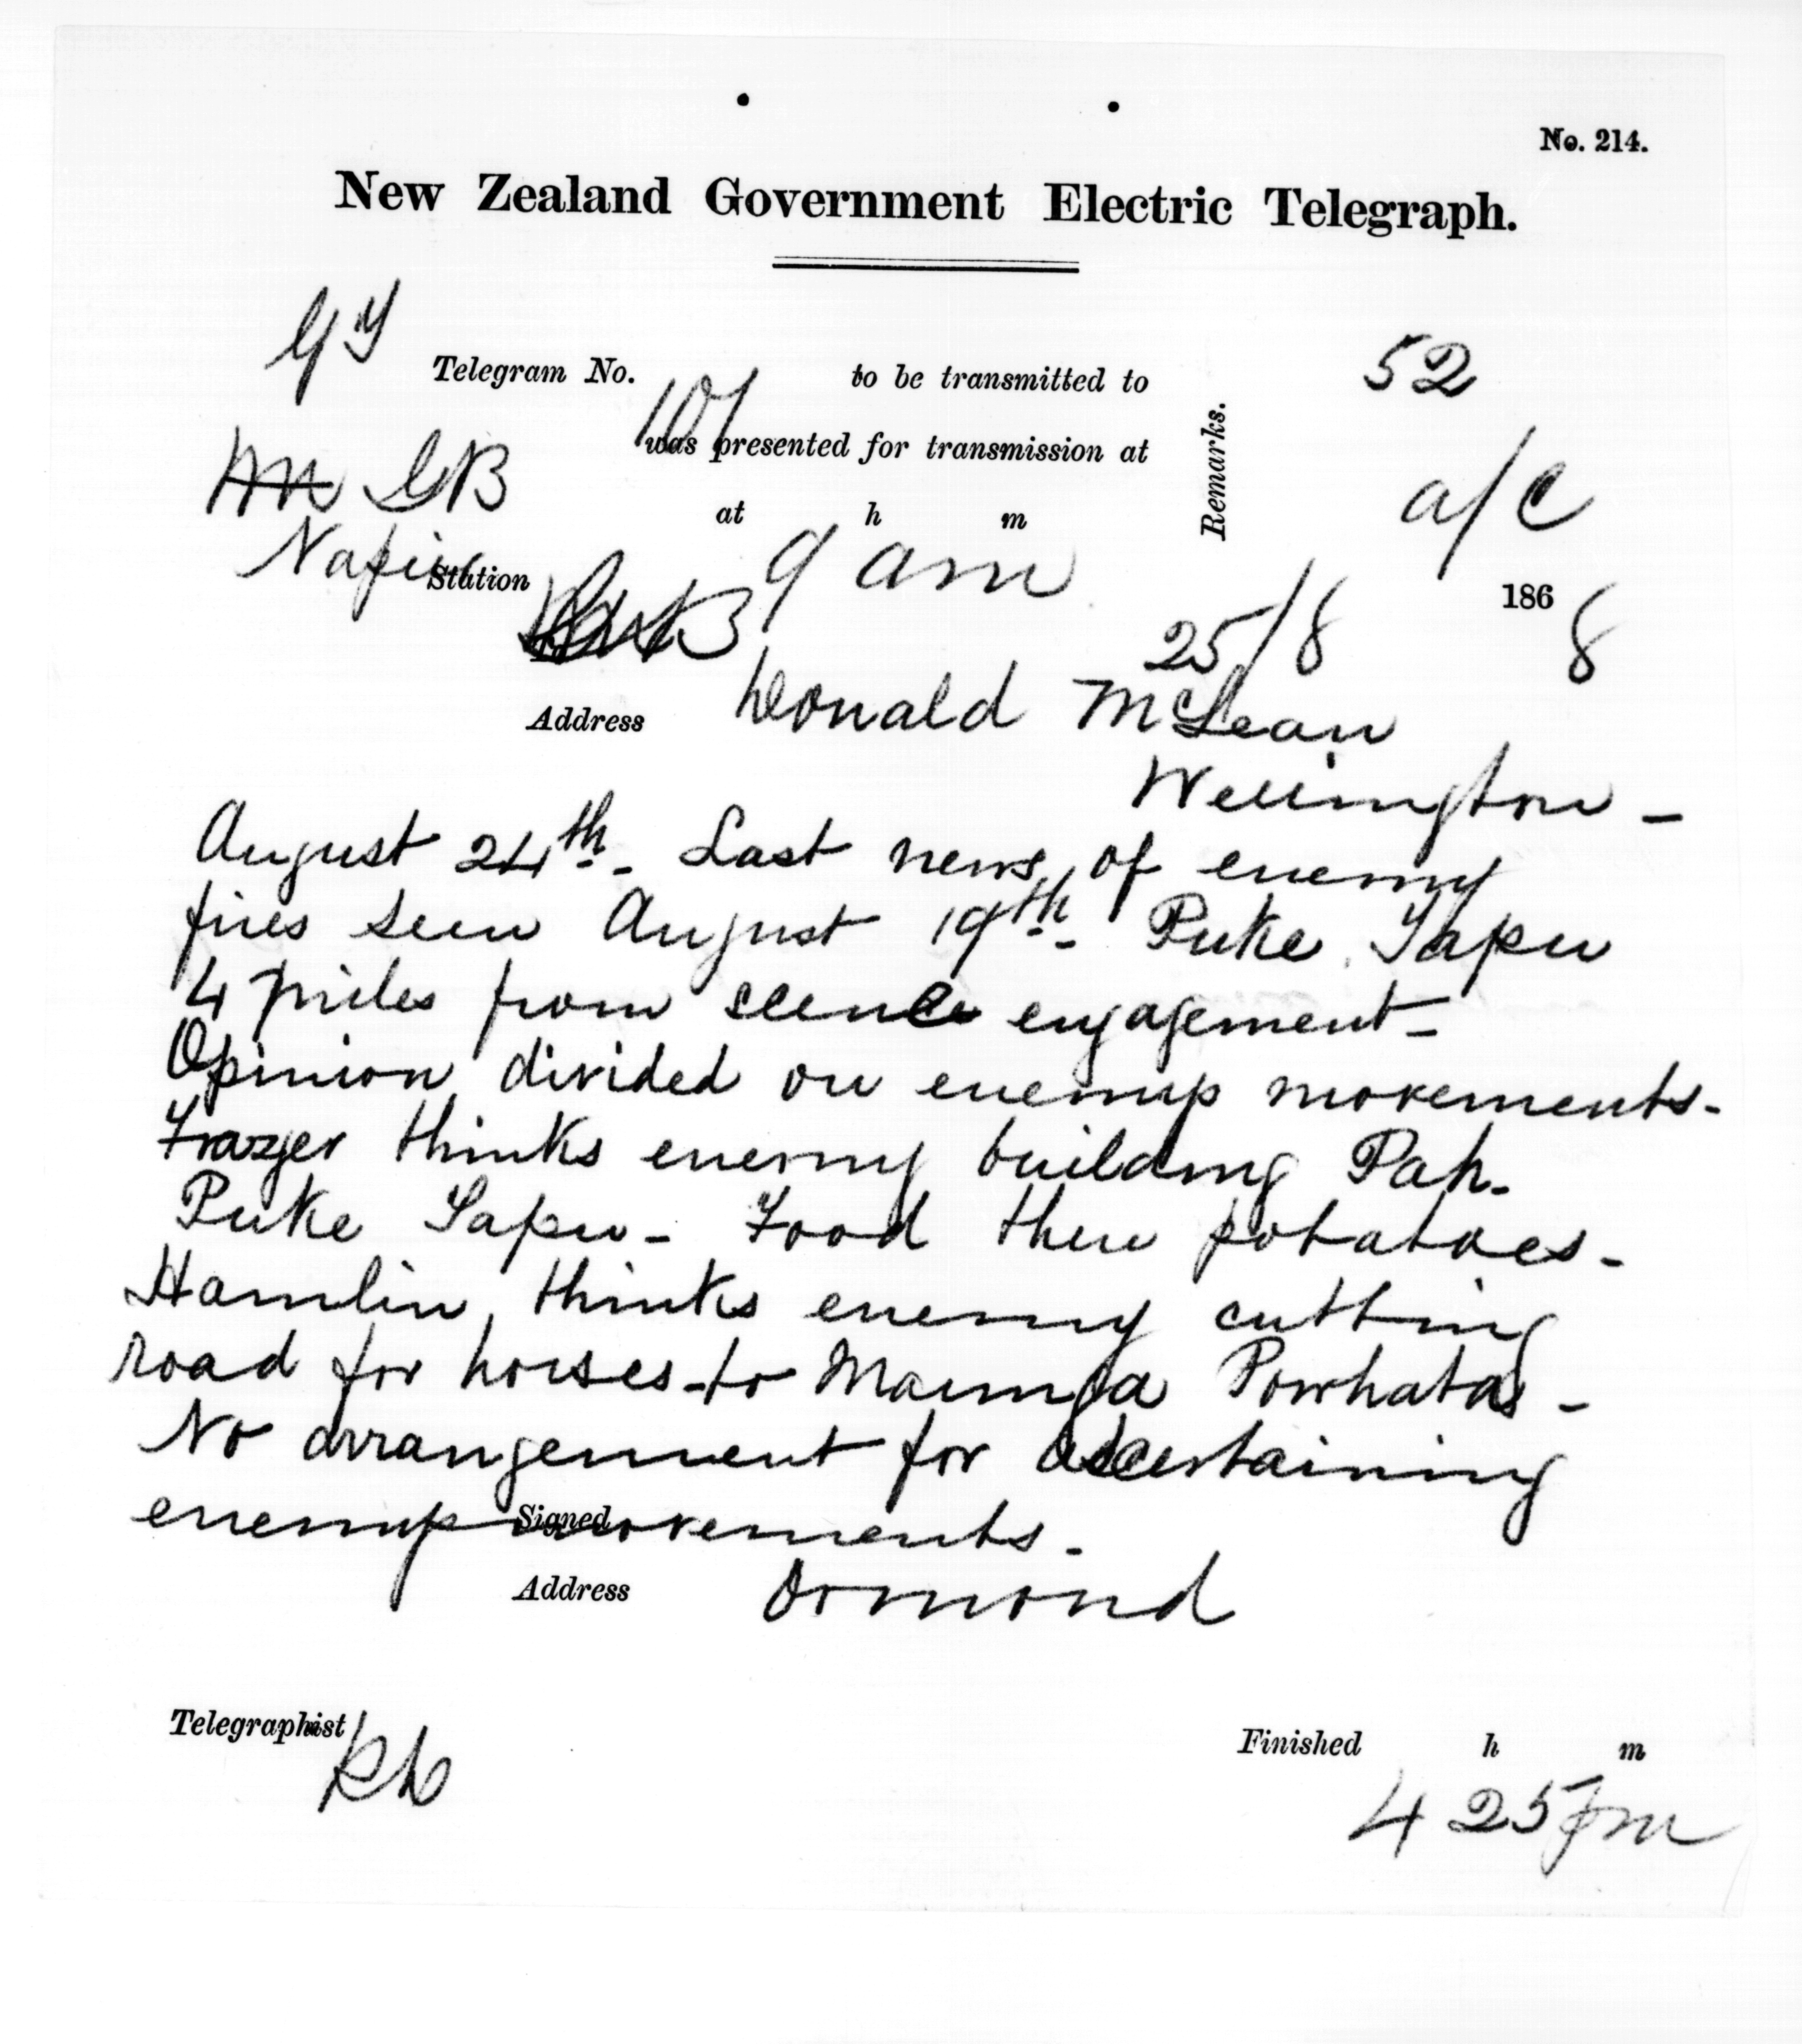 No. 214.
New Zealand Government Electric Telegraph.
Telegram No. 101 to be transmitted to
52
was presented for transmission at
Remarks.
GB
a/c
at h m
Napier
Station
9 am
1868
25/8
Address Donald McLean
Wellington -
August 24th. - Last news of enemy
fires seen August 19th. - Puke Tapu
4 miles from scene engagement -
Opinion divided on enemys movements -
Frazer thinks enemy building Pah -
Puke Tapu - Food there potatoes -
Hamlin thinks enemy cutting
road for horses to Maunga Powhatas -
No arrangement for ascertaining
enemys movements -
Signed
Address Ormond
Telegraphist
Finished h m
4 25 pm